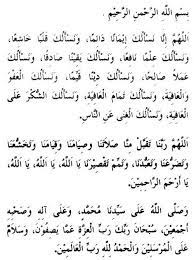 بِسْمِ اللهِ الرَّحْمٰنِ الرَّحِيْمِ .
اَللّٰهُمَّ إِنَّا نَسْأَلُكَ إِيْمَانًا دَائِمًا، وَنَسْأَلُكَ قَلْبًا خَاشِعًا،
وَنَسْأَلُكَ عِلْمًا نَافِعًا، وَنَسْأَلُكَ يَقِيْنًا صَادِقًا، وَنَسْأَلُكَ
عَمَلًا صَالِحًا، وَنَسْأَلُكَ دِيْنًا قَيِّمًا، وَنَسْأَلُكَ الْعَفْوَ
وَالْعَافِيَةَ، وَنَسْأَلُكَ تَمَامَ الْعَافِيَةِ، وَنَسْأَلُكَ الشُّكْرَ عَلَى
الْعَافِيَةِ، وَنَسْأَلُكَ الْغِنَى عَنِ النَّاسِ.
اَللّٰهُمَّ رَبَّنَا تَقَبَّلْ مِنَّا صَلَاتَنَا وَصِيَامَنَا وَقِيَامَنَا وَتَخَشُّعَنَا
وَتَضَرُّعَنَا وَتَعَبُّدَنَا، وَتَمِّمْ تَقْصِيْرَنَا يَا اَللهُ، يَا اَللهُ، يَا اَللهُ،
يَا أَرْحَمَ الرَّاحِمِيْنَ.
وَصَلَّى اللهُ عَلَى سَيِّدِنَا مُحَمَّدٍ، وَعَلَى آلِهِ وَصَحْبِهِ
أَجْمَعِيْنَ، سُبْحَانَ رَبِّكَ رَبِّ الْعِزَّةِ عَمَّا يَصِفُوْنَ، وَسَلَامٌ
عَلَى الْمُرْسَلِيْنَ وَالْحَمْدُ لِلهِ رَبِّ الْعَالَمِيْنَ.